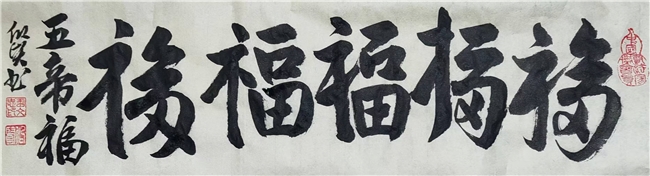 福福福福福
五帝福